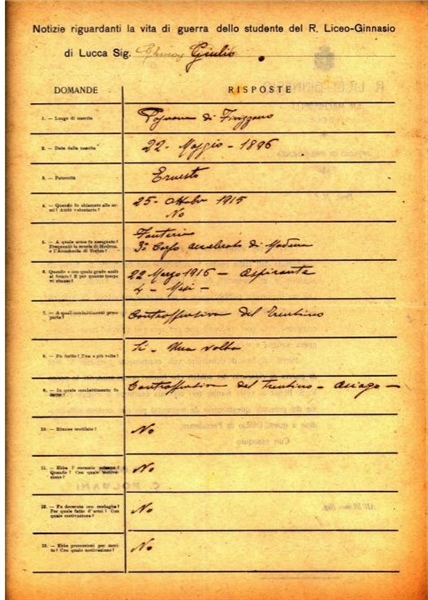 Notizie riguardanti la vita di guerra dello studente del R. Liceo-Ginnasio
di Lucca Sig. Giulio
DOMANDE RISPOSTE
1. — Luogo di nascita di Fivizzano
2. — Data della nascita 22. Maggio - 1896
3. — Paternità Ernesto
4. — Quando fu chiamato alle armi? Andò volontario? 25. Ottobre 1915
No
5. — A quale arma fu assegnato? Fanteria
Frequentò la scuola di Modena, o l'Accademia di Torino? 3° Corso accelerato di Modena
6. — Quando e con quale grado andò al fronte? E per quanto tempo vi rimase? 22 Marzo 1916 — Aspirante
4 - Mesi -
7. — A quali combattimenti prese parte? Controffensiva del Trentino
8. — Fu ferito? Una o più volte? Si - Una volta
9. — In quale combattimento fu ferito? Controffensiva del Trentino - Asiago -
10. — Rimase mutilato? No
11. — Ebbe l' encomio solenne? Quando? Con quale motivazione? No
12. — Fu decorato con medaglia? Per quale fatto d'armi? Con quale motivazione? No
13. — Ebbe promozioni per merito? Con quale motivazione? No